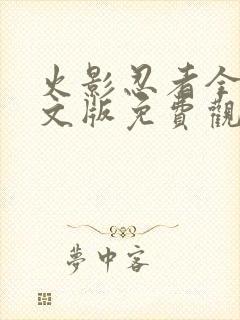 火影忍者全
文版免費觀
夢中客